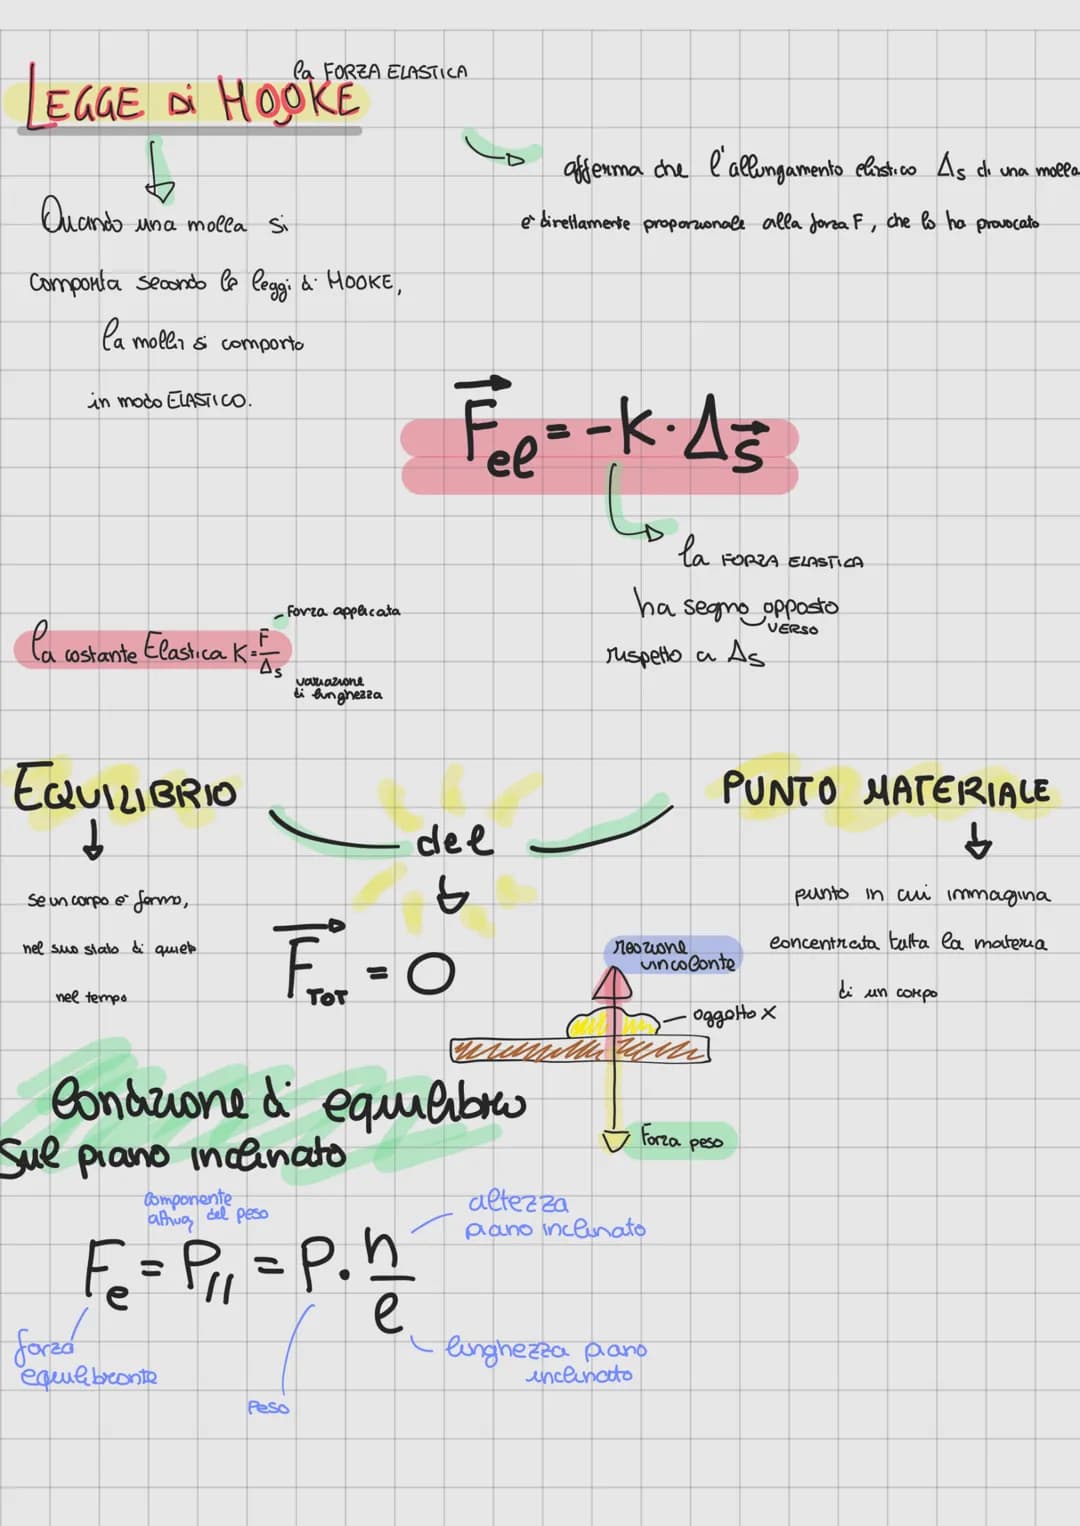 la FORZA ELASTICA
LEGGE Di HOOKE
afferma che l'allungamento elastico Δs di una molla
è direttamente proporzionale alla forza F, che lo ha provocato
Quando una molla si
comporta secondo le leggi di HOOKE,
la molla si comporta
in modo ELASTICO.
F el = -K · Δs
la FORZA ELASTICA
ha segno opposto
VERSO
rispetto a Δs
Forza applicata
la costante Elastica K = F/Δs
variazione
di lunghezza
EQUILIBRIO
del
PUNTO MATERIALE
se un corpo è fermo,
nel suo stato di quiete
nel tempo
F TOT = 0
punto in cui immagina
concentrata tutta la materia
di un corpo
reazione
vincolante
oggetto X
Forza peso
Condizione di equilibrio
Sul piano inclinato
componente
del peso
altezza
piano inclinato
Fe = P// = P · h/l
forza
equilibrante
Peso
lunghezza piano
inclinato